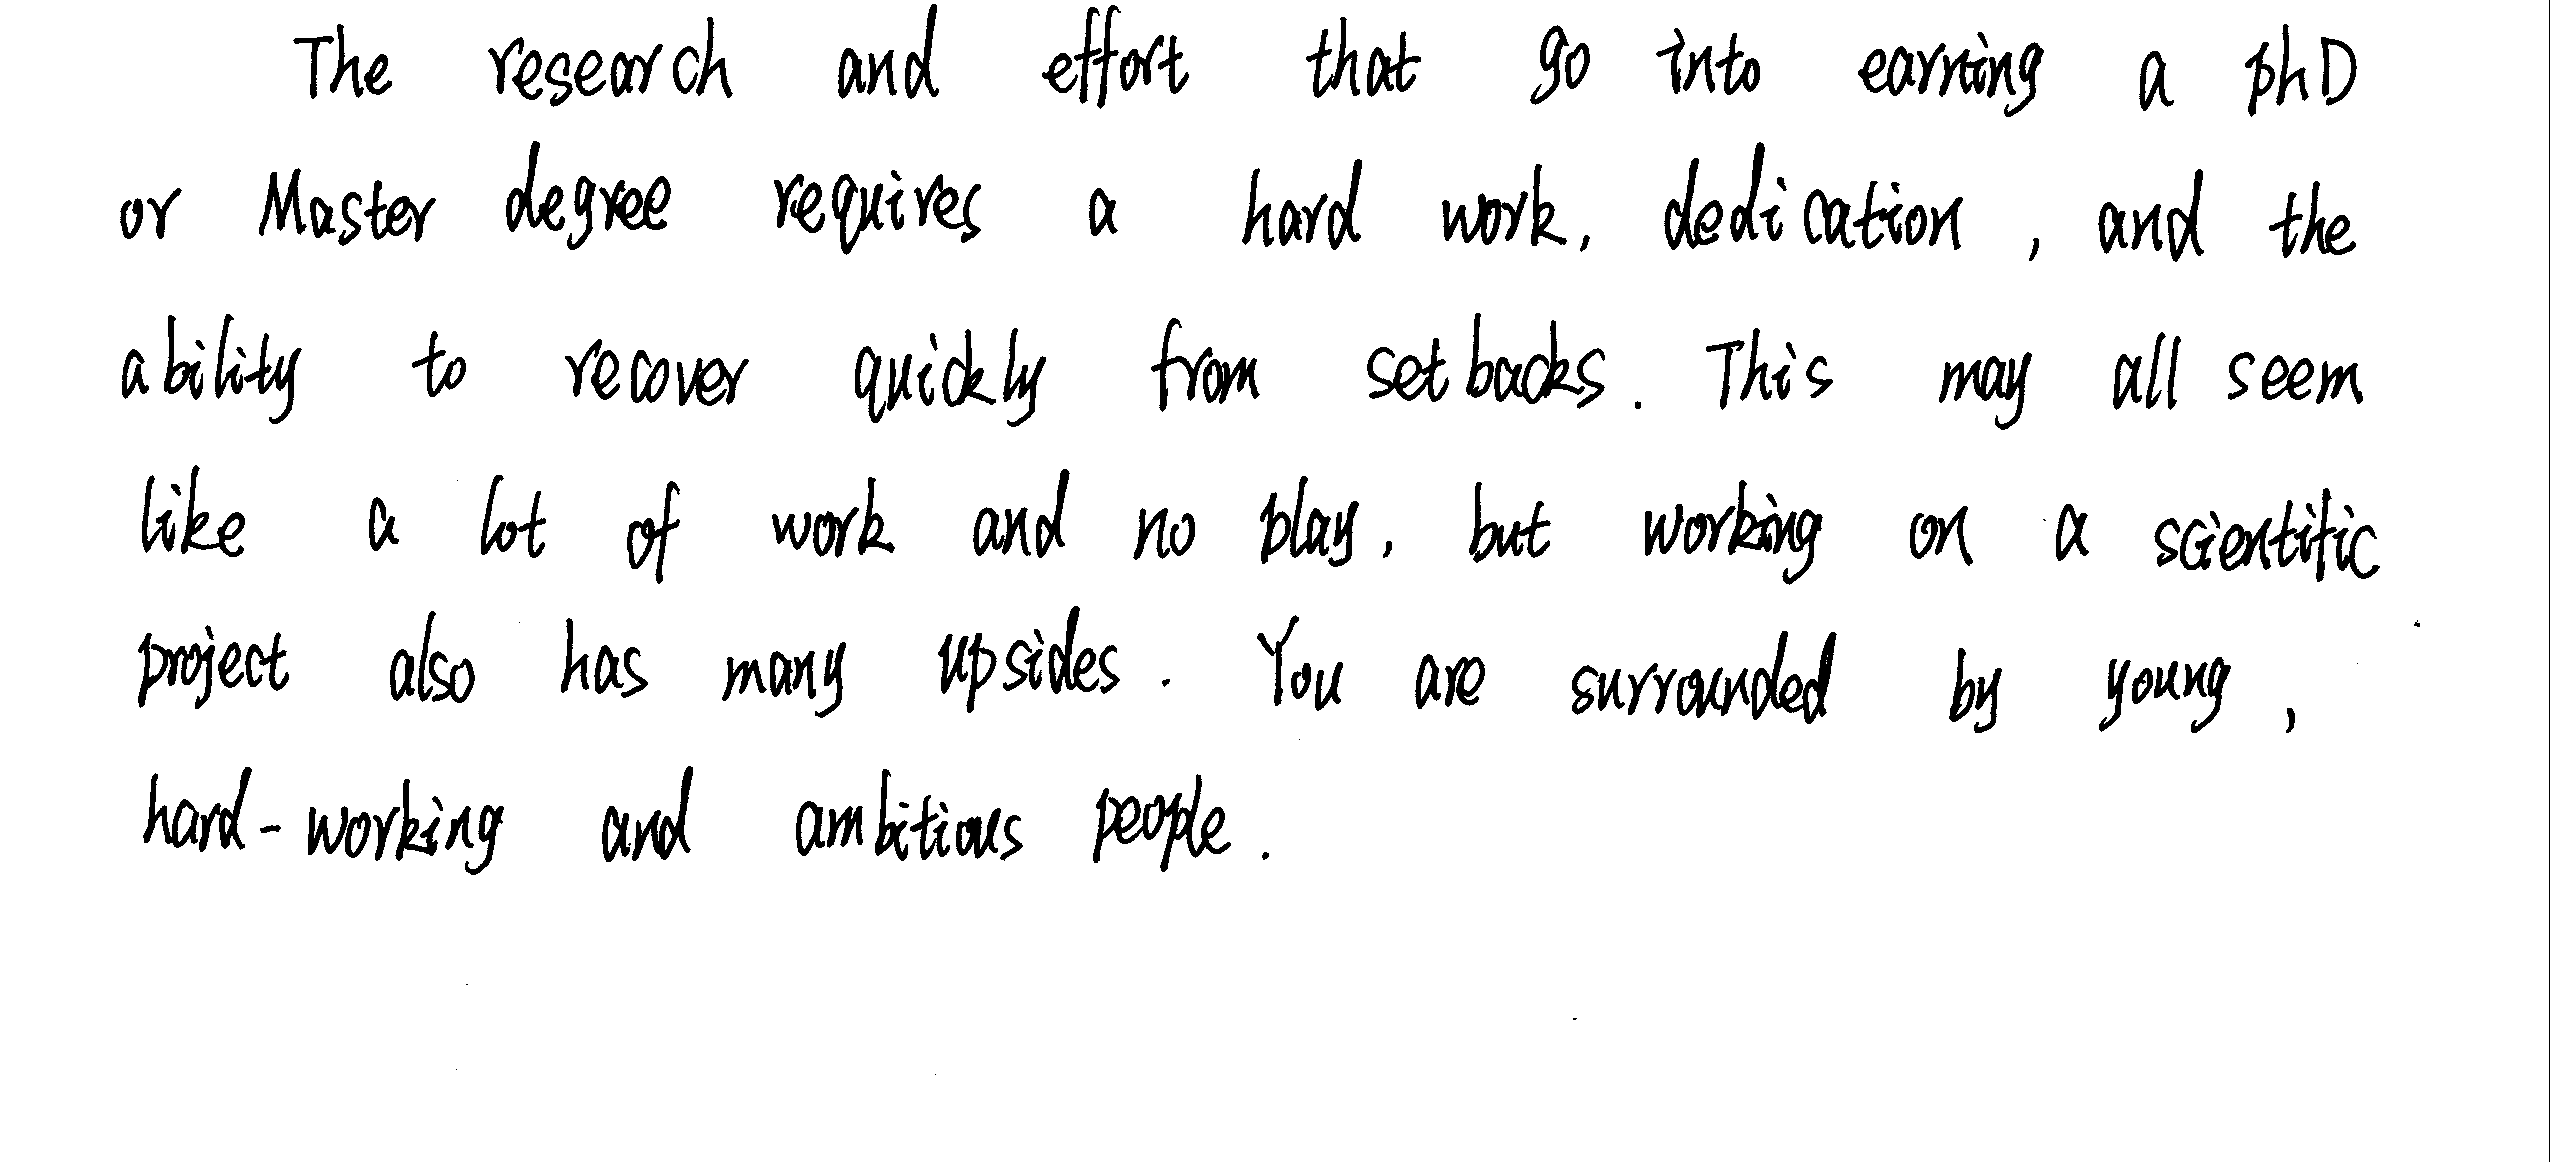 The research and effort that go into earning a phD
or Master degree requires a hard work, dedication, and the
ability to recover quickly from setbacks. This may all seem
like a lot of work and no play, but working on a scientific
project also has many upsides. You are surrounded by young,
hard-working and ambitious people.